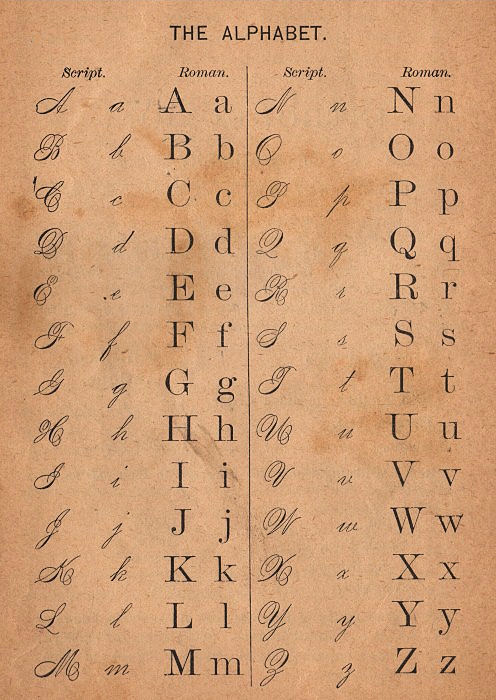 THE ALPHABET.
Script. Roman. Script. Roman.
A a A a N n N n
B b B b O o O o
C c C c P p P p
D d D d Q q Q q
E e E e R r R r
F f F f S s S s
G g G g T t T t
H h H h U u U u
I i I i V v V v
J j J j W w W w
K k K k X x X x
L l L l Y y Y y
M m M m Z z Z z